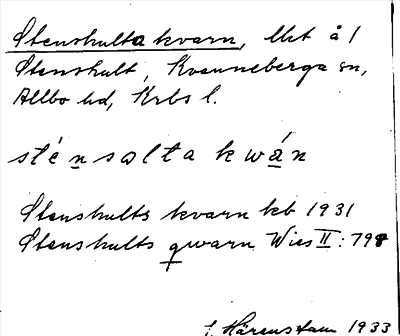 Stenshulta kvarn, Mkt å 1
Stenshult, Kvenneberga sn,
Allbo hd, Krbs l.
sténsəlta kwán
Stenshults kvarn kb 1931
Stenshults qwarn Wies II: 798
Härenstam 1933